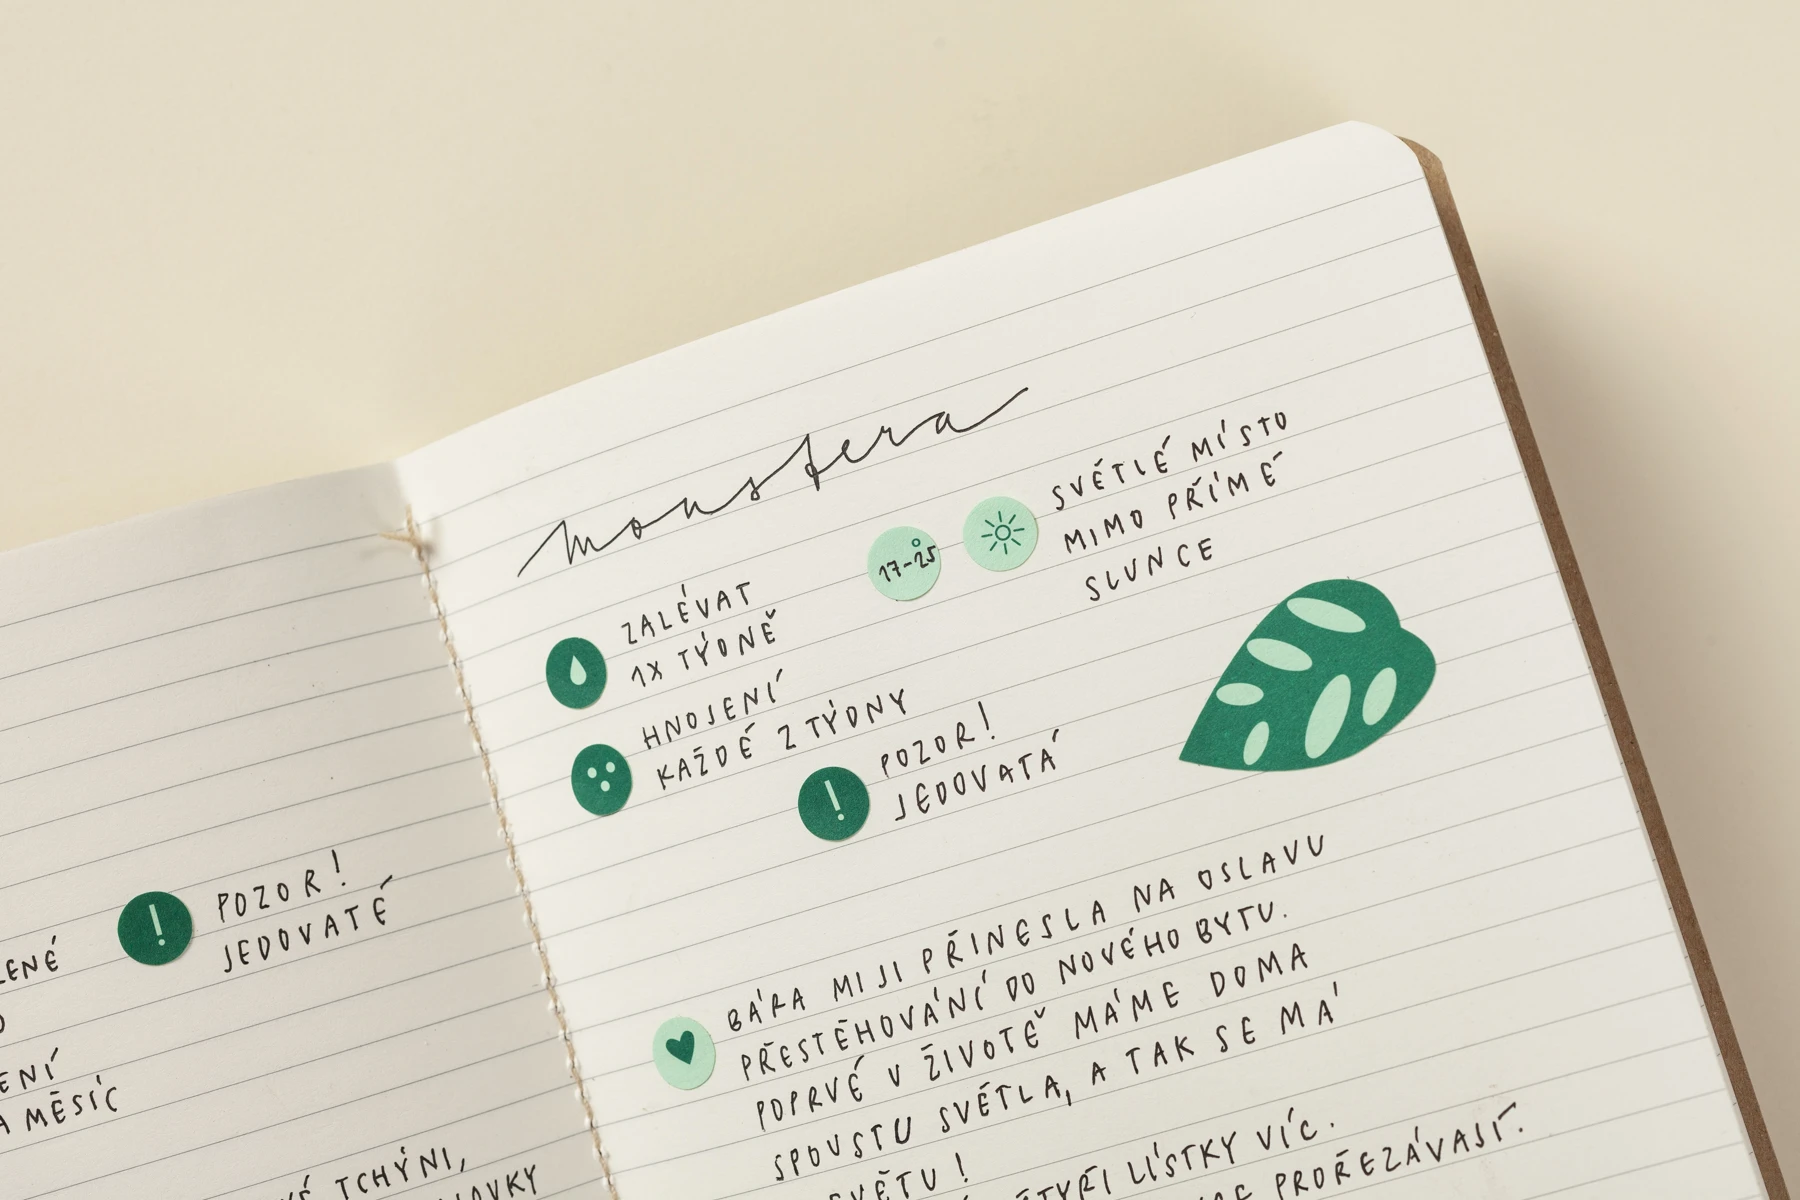 LENÉ
POZOR!
JEDOVATÉ
ENÍ
A MĚSÍC
TCHÝNI,
monstera
17-25°
SVĚTLÉ MÍSTO
MIMO PŘÍMÉ
SLUNCE
ZALÉVAT
1X TÝDNĚ
HNOJENÍ
KAŽDÉ 2 TÝDNY
POZOR!
JEDOVATÁ
BÁRA MI JI PŘINESLA NA OSLAVU
PŘESTĚHOVÁNÍ DO NOVÉHO BYTU.
POPRVÉ V ŽIVOTĚ MÁME DOMA
SPOUSTU SVĚTLA, A TAK SE MÁ
SVĚTU!
ČTYŘI LÍSTKY VÍC.
PROŘEZÁVAJÍ.